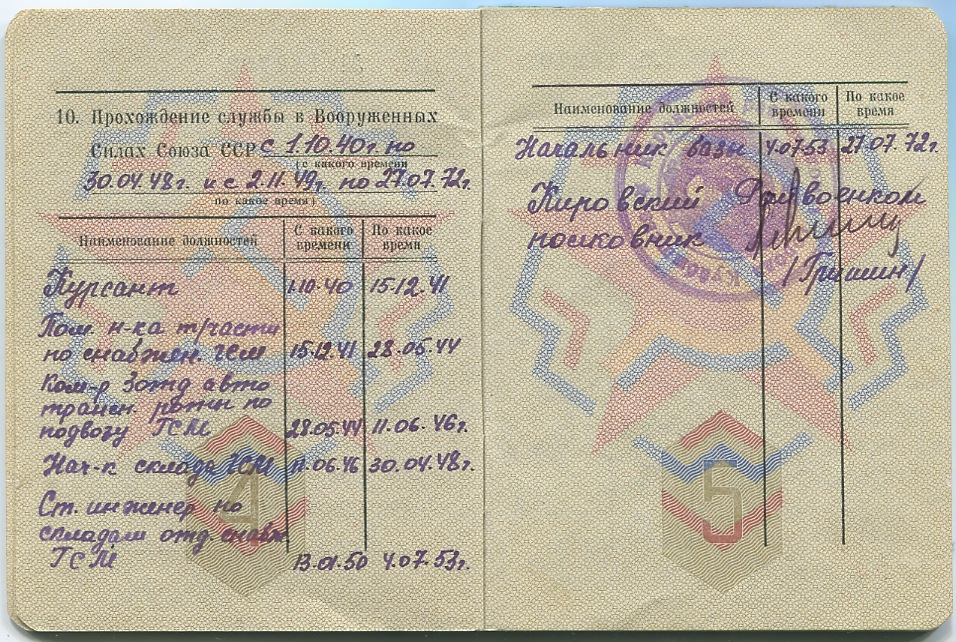 10. Прохождение службы в Вооруженных
Силах Союза ССР с 1.10.40г. по
(с какого времени
30.04.48г. и с 2.11.49г. по 27.07.72г.
по какое время)
Наименование должностей С какого времени По какое время
Курсант 1.10.40 15.12.41
Пом. н-ка т/части
по снабжен. ГСМ 15.12.41 28.05.44
Ком-р 3 отд авто
трансп. роты по
подвозу ГСМ 28.05.44 11.06.46г.
Нач-к склада ГСМ 11.06.46 30.04.48г.
Ст. инженер по
складам отд. снабж.
ГСМ 13.01.50 4.07.53г.
4
Наименование должностей С какого времени По какое время
Начальник базы 4.07.53 27.07.72г.
Кировский военком
полковник
/Гришин/
5